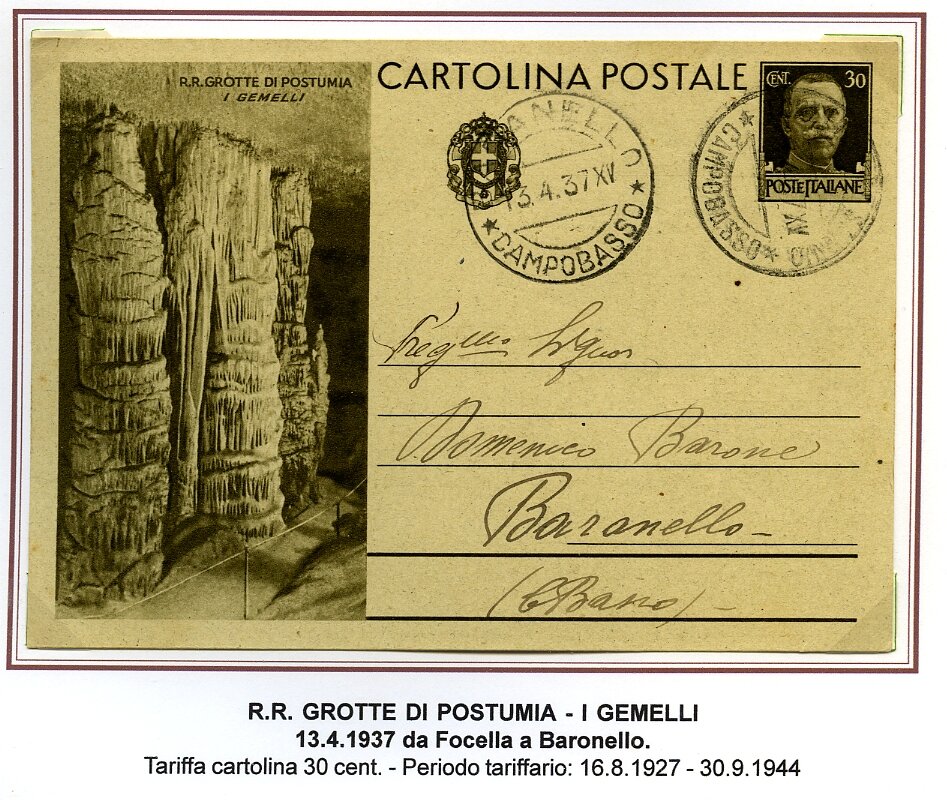 R.R. GROTTE DI POSTUMIA
I GEMELLI
CARTOLINA POSTALE
CENT. 30
POSTE ITALIANE
ANELLO
13.4.37 XV
★ CAMPOBASSO ★
★ CAMPOBASSO ★
XV
Preg.mo Signor
Domenico Barone
Baranello
(CBasso)
R.R. GROTTE DI POSTUMIA - I GEMELLI
13.4.1937 da Focella a Baronello.
Tariffa cartolina 30 cent. - Periodo tariffario: 16.8.1927 - 30.9.1944